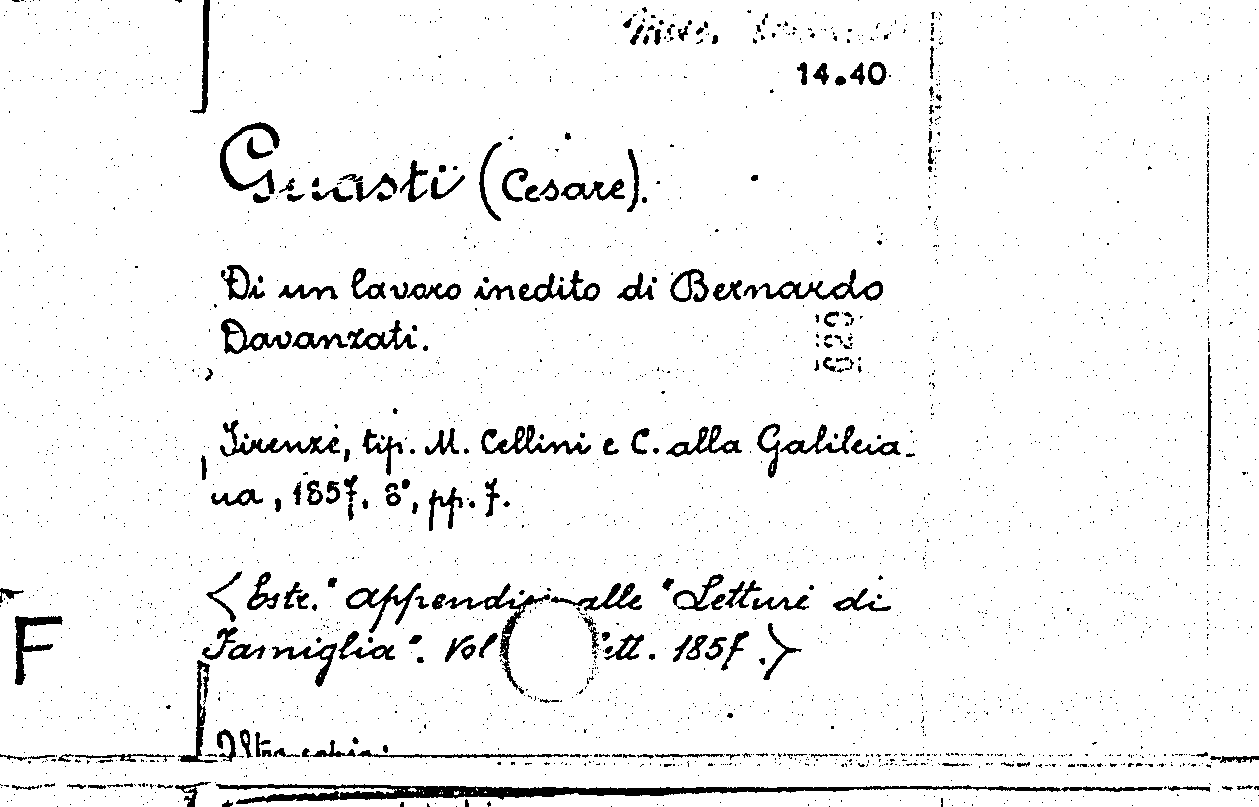 Misc.
14.40
Guasti (Cesare).
Di un lavoro inedito di Bernardo
Davanzati.
Firenze, tip. M. Cellini e C. alla Galileia-
na, 1857. 8°, pp. 7.
<Estr. appendice alle "Letture di
Famiglia". Vol Sett. 1857.>
F
Altra copia: